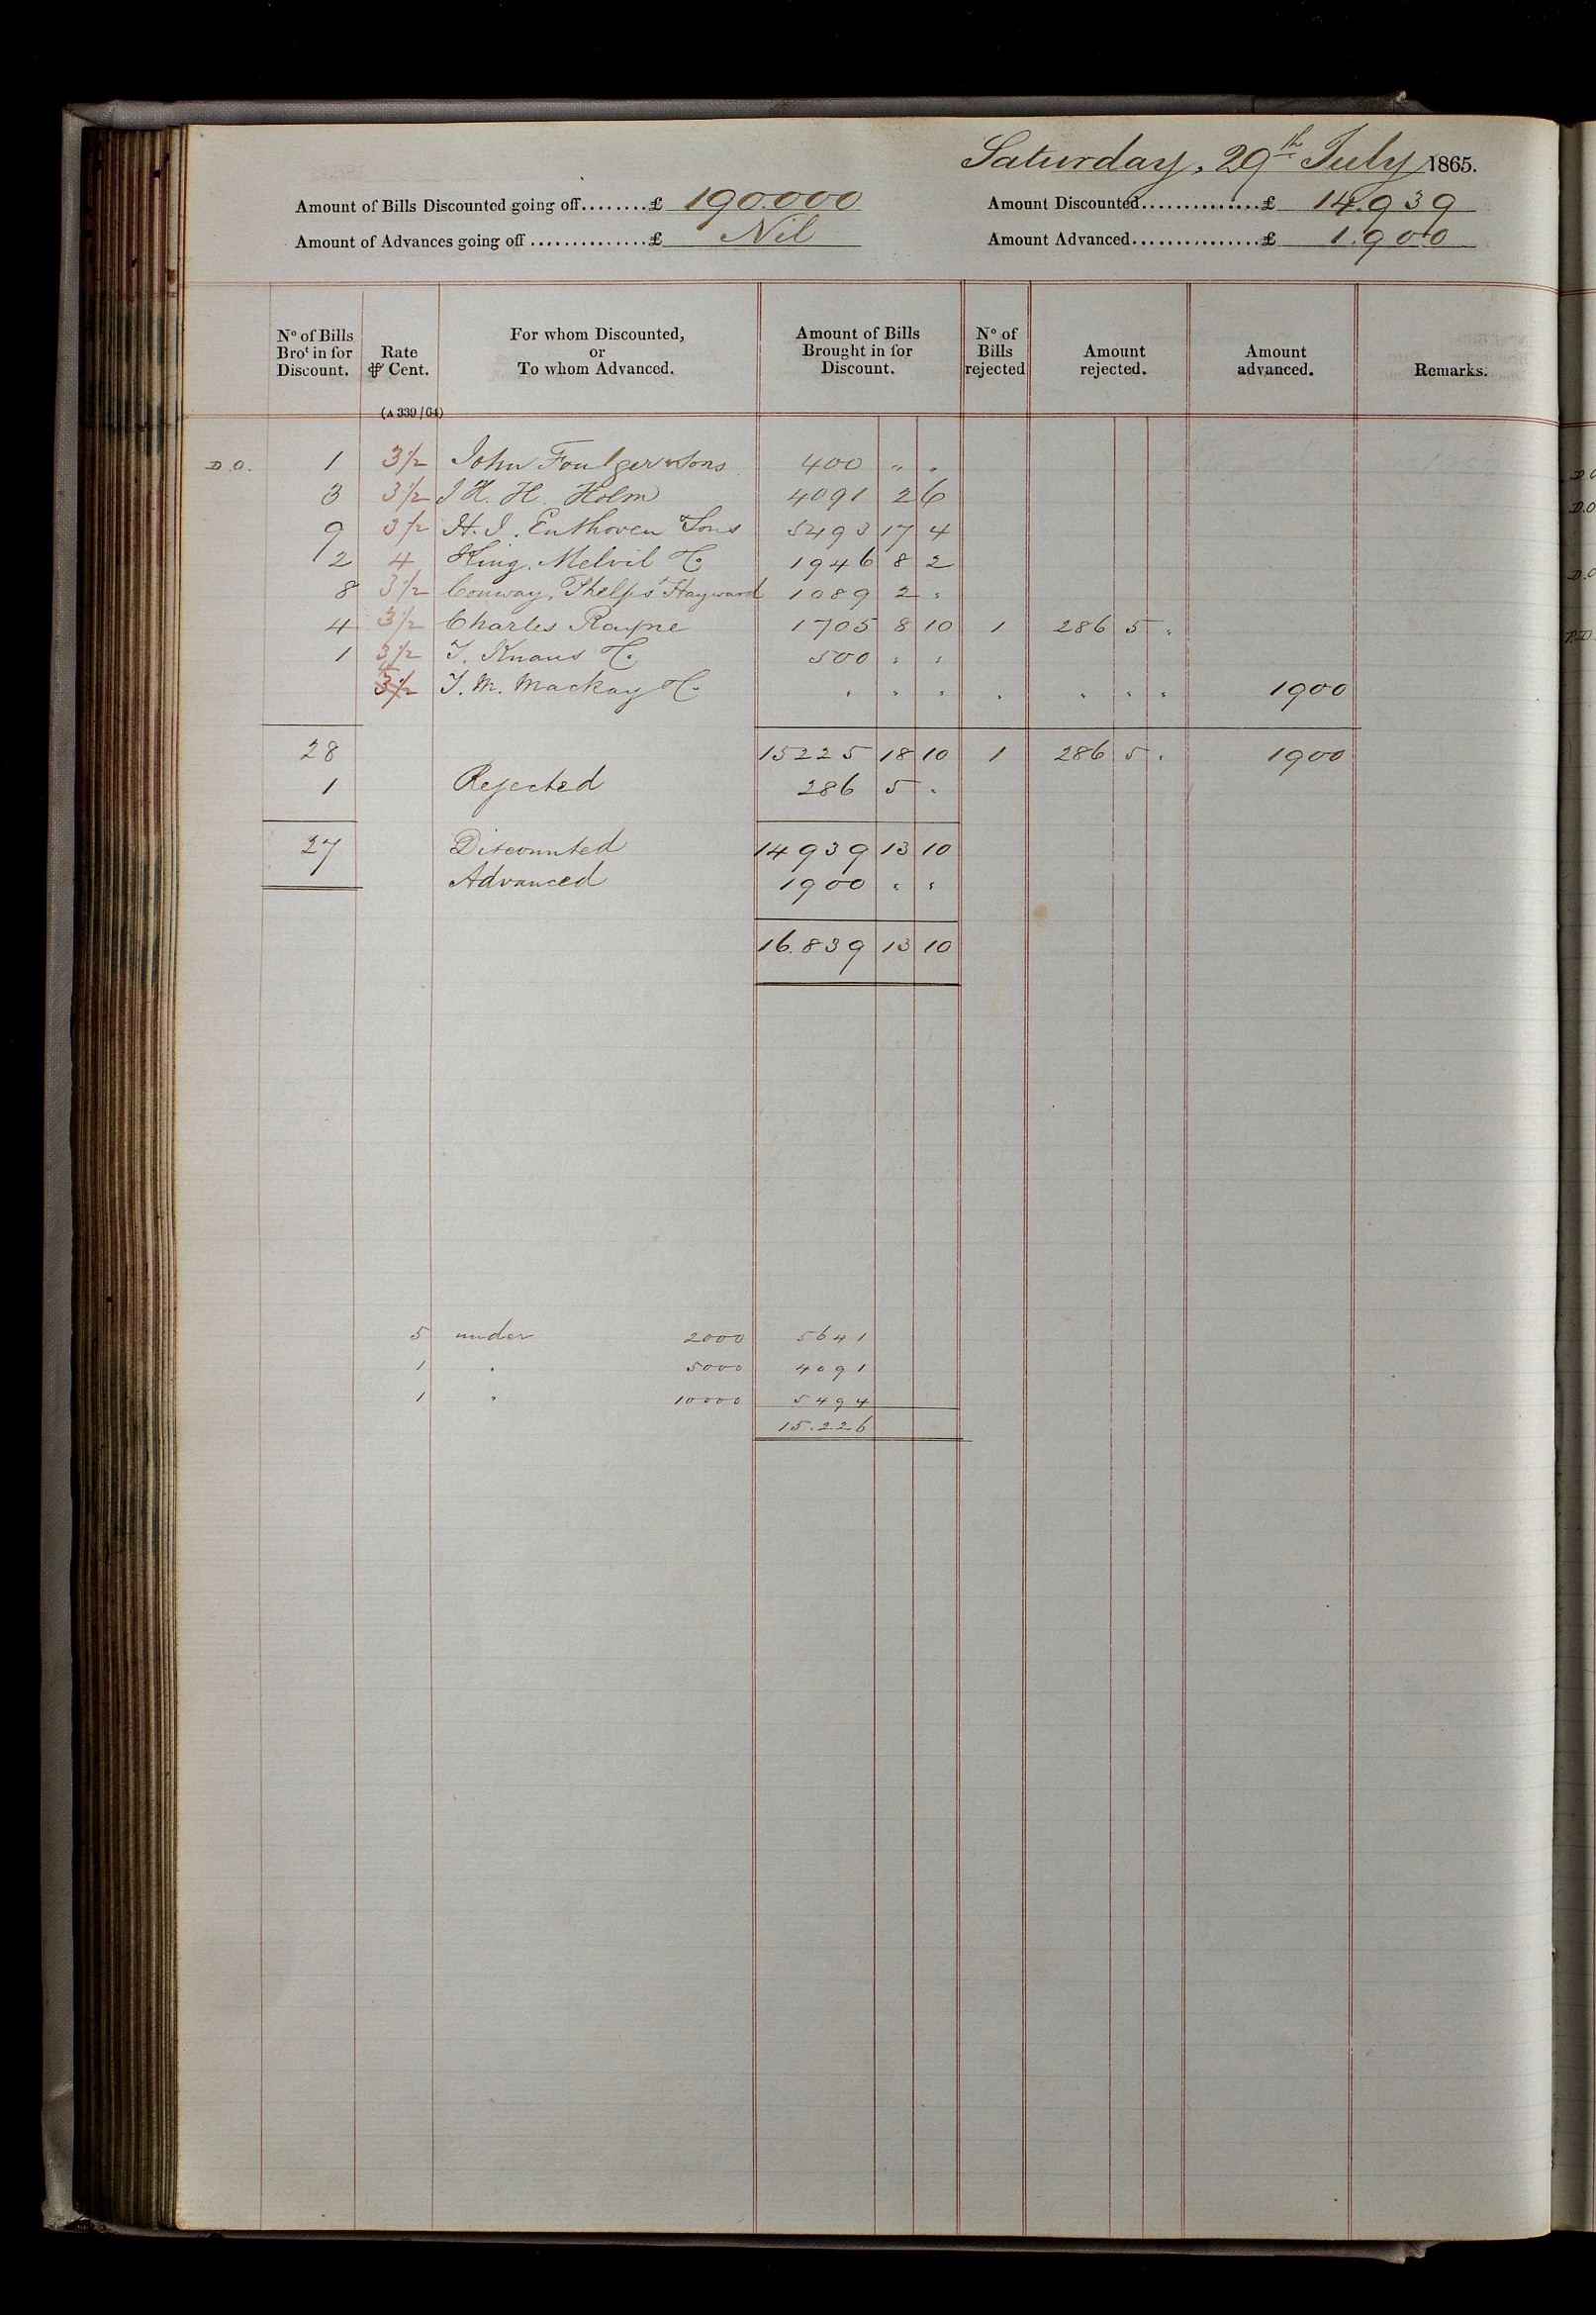 Saturday, 29th July 1865.
Amount of Bills Discounted going off........£ 190.000
Amount Discounted..............£ 14.939
Amount of Advances going off..............£ Nil
Amount Advanced................£ 1.900
No of Bills Brot in for Discount. Rate ⅌ Cent. For whom Discounted, or To whom Advanced. Amount of Bills Brought in for Discount. No of Bills rejected Amount rejected. Amount advanced. Remarks.
(A 339/64)
D.O. 1 3½ John Foulger & Sons 400 " "
3 3½ J H. H. Holm 4091 2 6
9 3½ H. J. Enthoven Sons 5493 17 4
2 4 King, Melvil & Co 1946 8 2
8 3½ Conway, Phelps Hayward 1089 2 "
4 3½ Charles Rayne 1705 8 10 1 286 5 "
1 3½ J. Knaus & Co 500 " "
4 3½ T. M. Mackay & Co " " " " " " " 1900
28 15225 18 10 1 286 5 " 1900
1 Rejected 286 5 "
27 Discounted 14939 13 10
Advanced 1900 " "
16.839 13 10
5 under 2000 5641
1 " 5000 4091
1 " 10000 5494
15.226
D.O
D.O
D.O
P.D